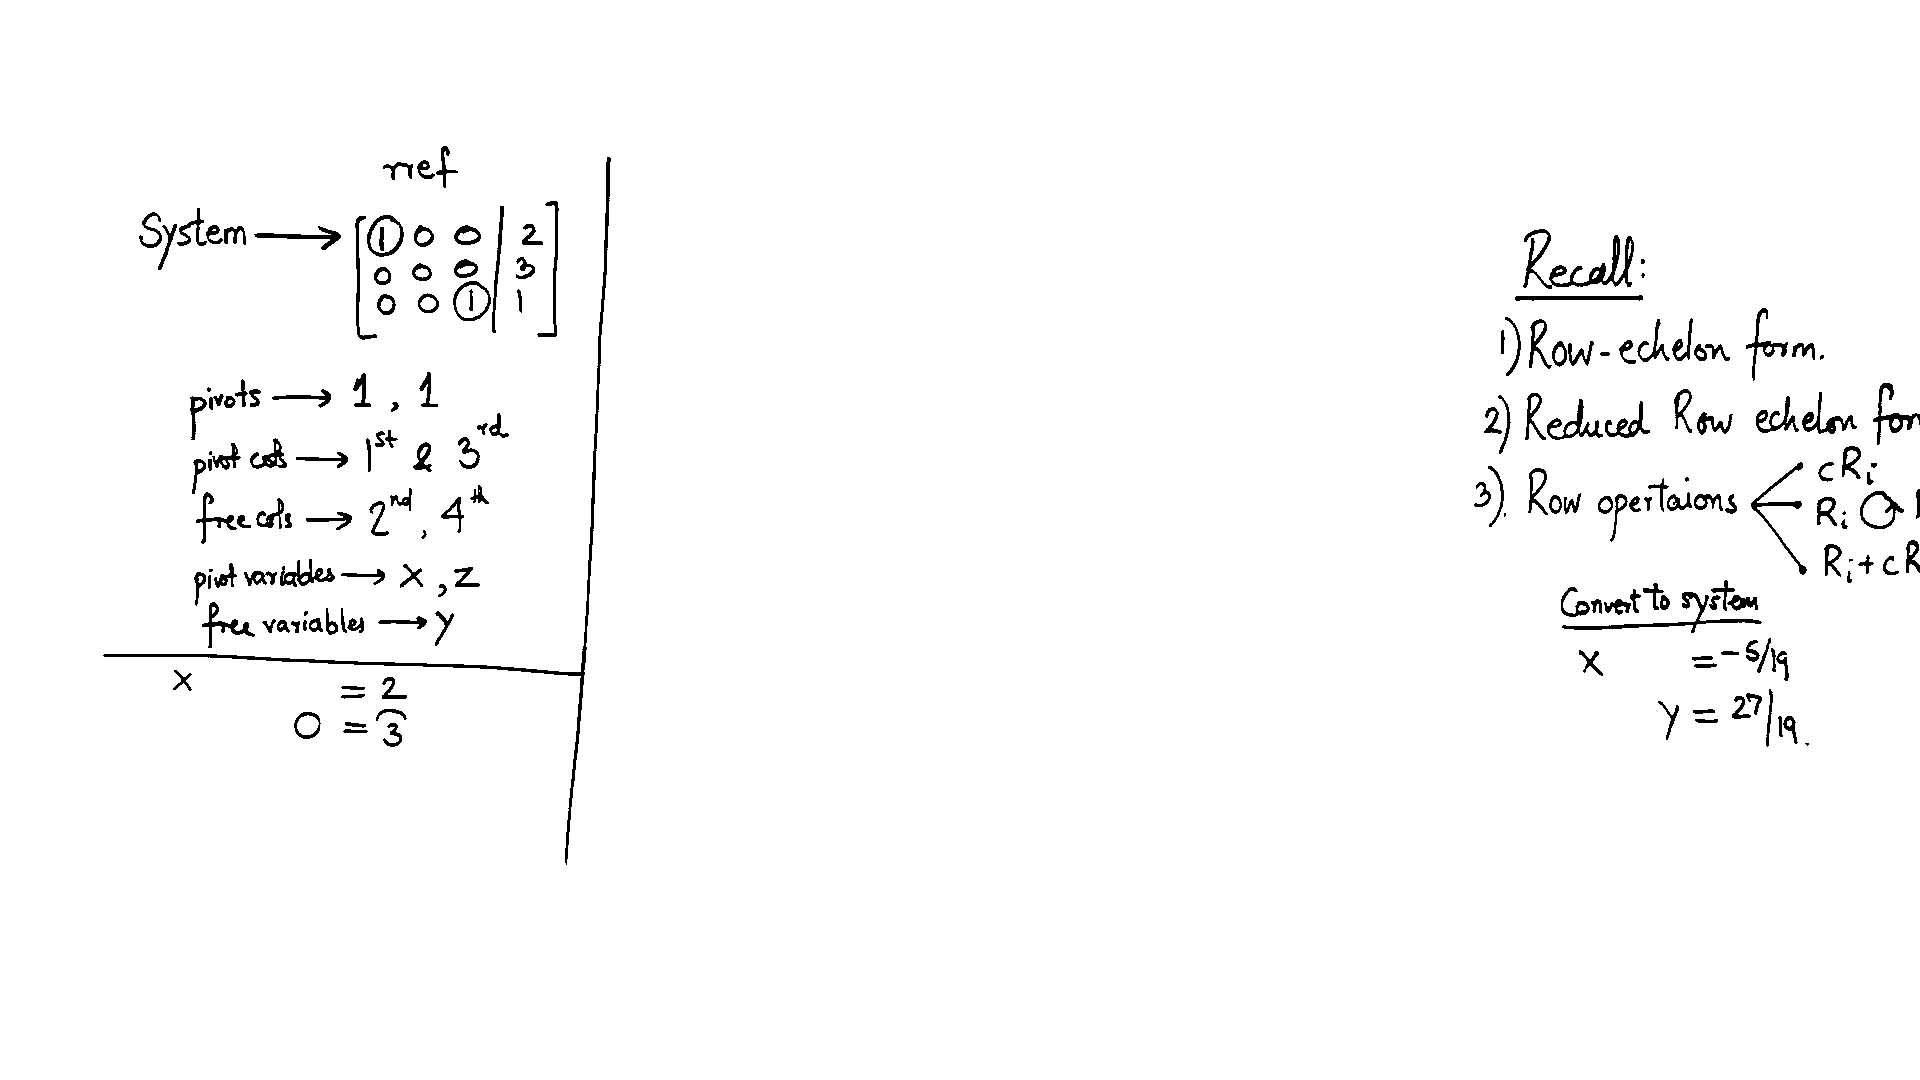 rref
System → [ 1 0 0 | 2 ]
0 0 0 | 3
0 0 1 | 1
pivots → 1 , 1
pivot cols → 1st & 3rd
free cols → 2nd , 4th
pivot variables → x , z
free variables → y
x = 2
0 = 3
Recall:
1) Row-echelon form.
2) Reduced Row echelon for
3). Row opertaions
cRi
Ri
Ri + cR
Convert to system
x = -5/19
y = 27/19.